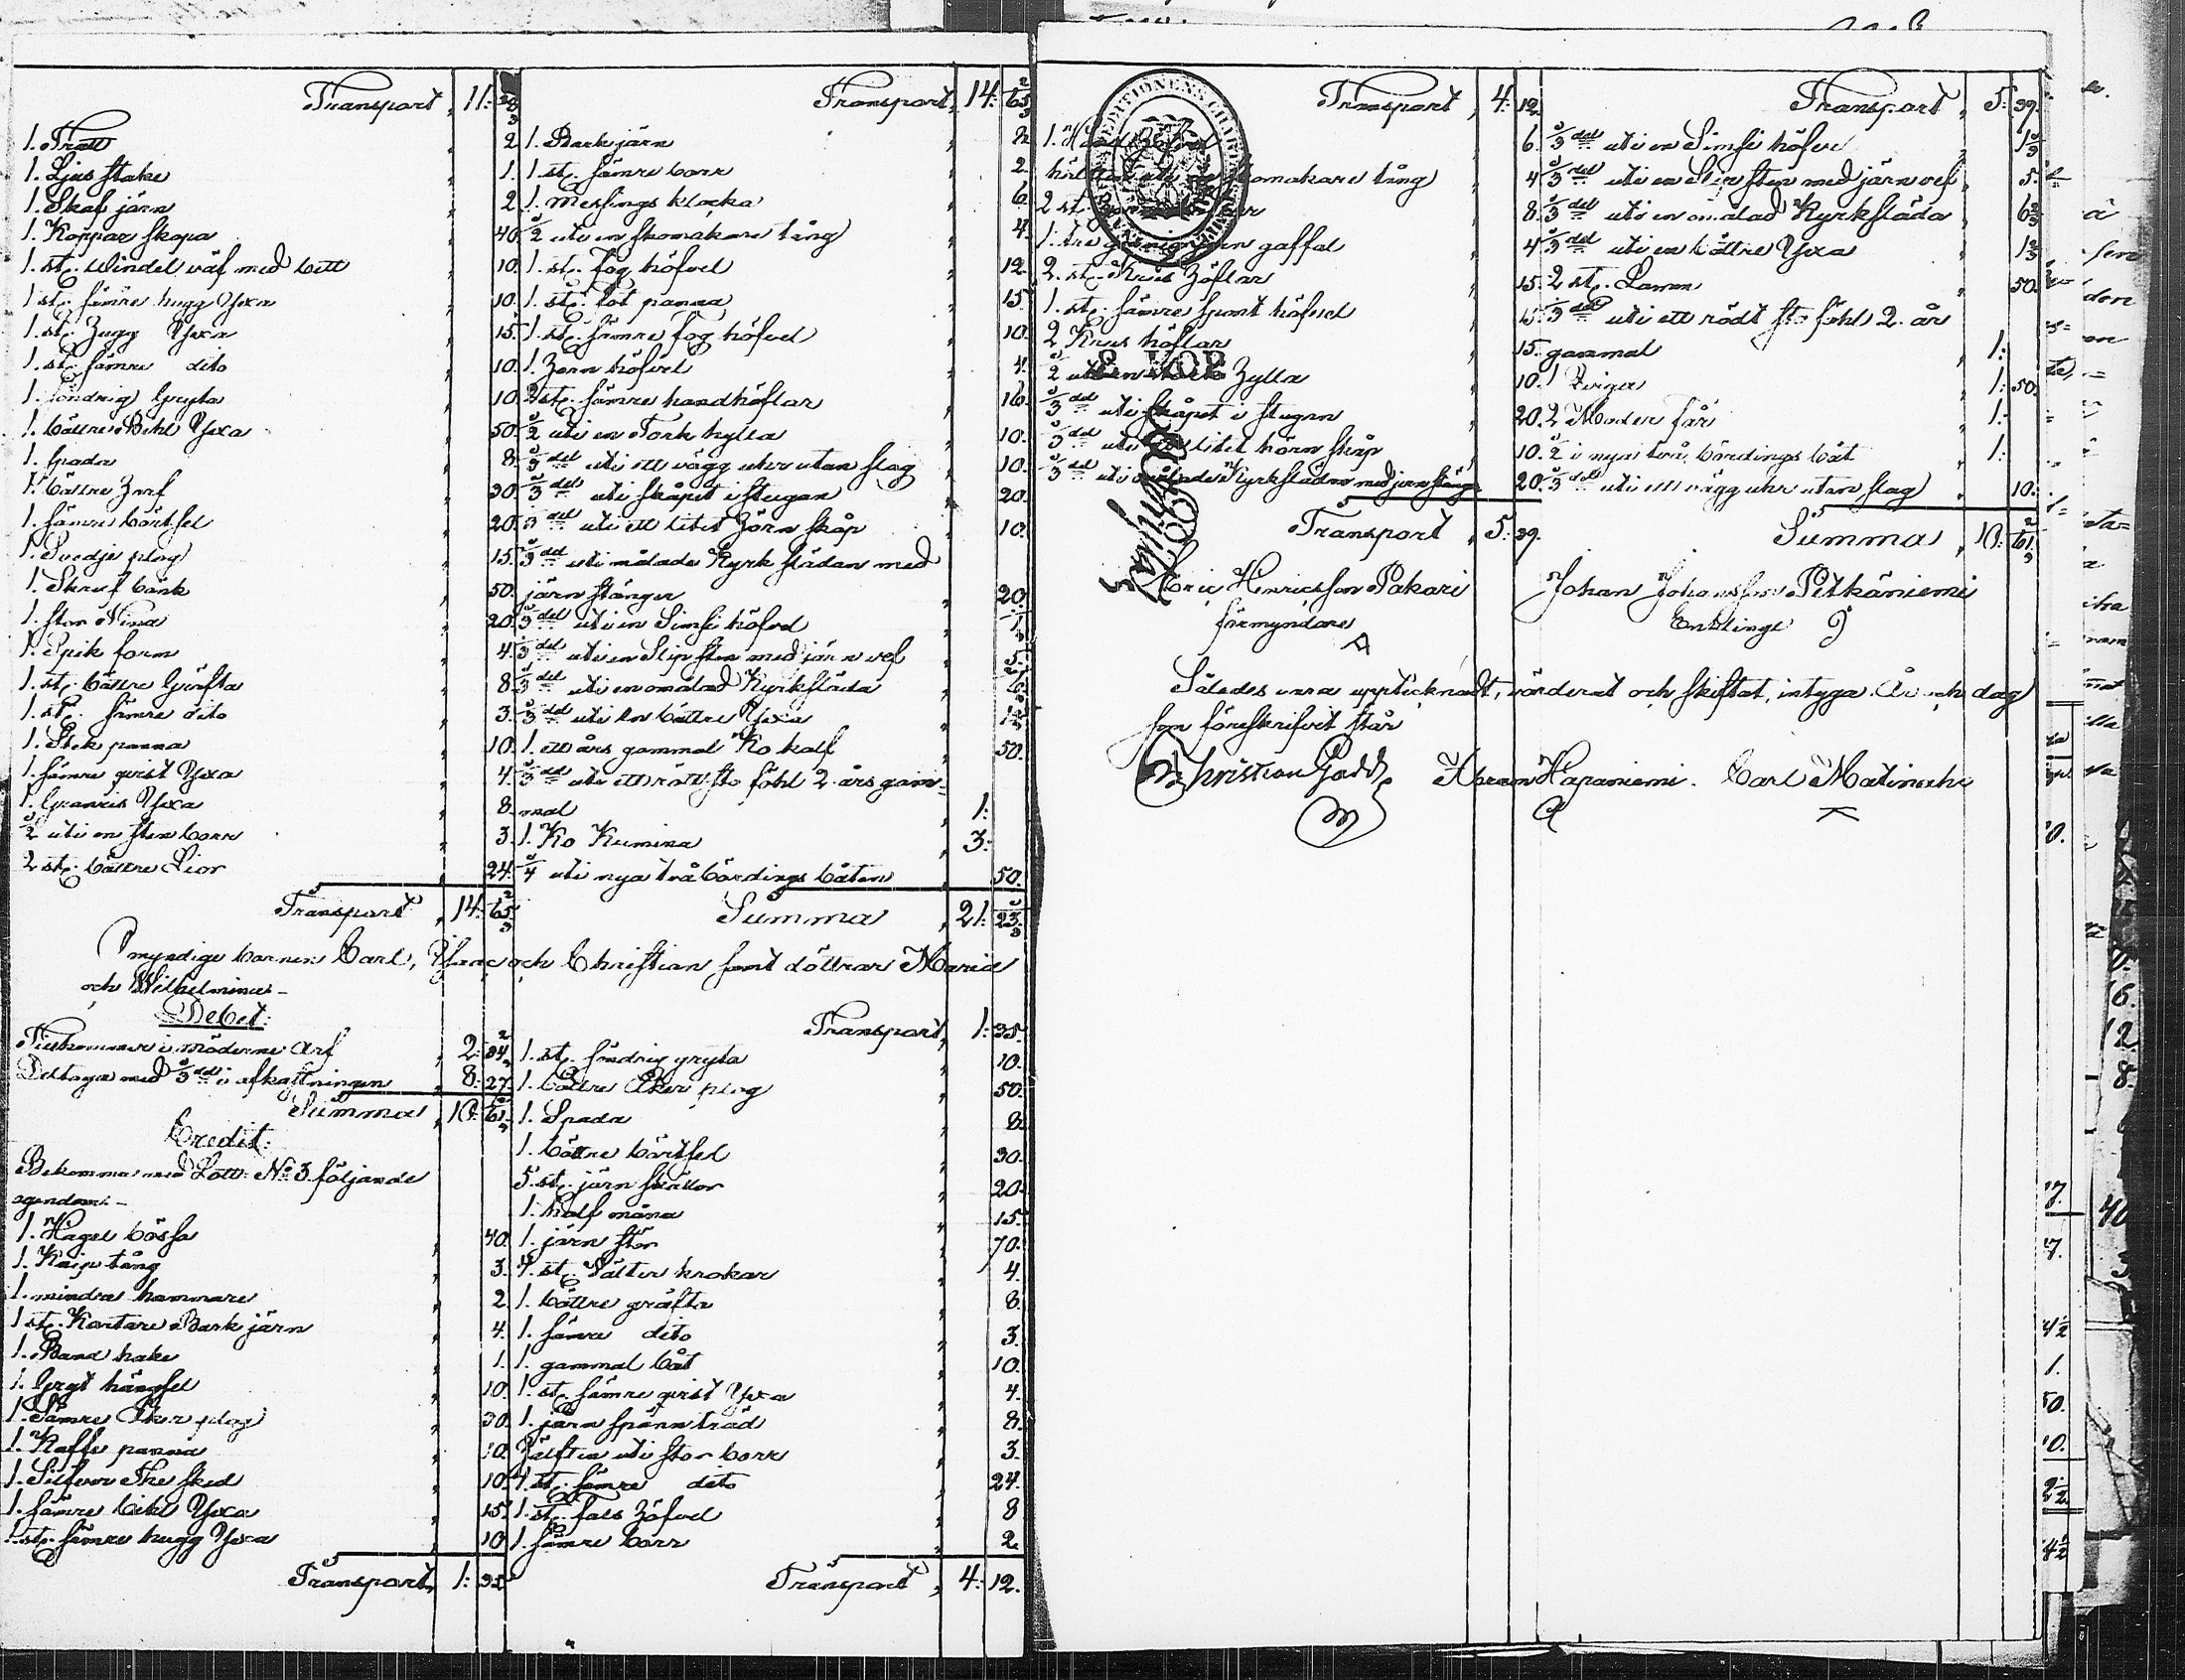 Transport, 11: 28
1. Tratt " 2
1. Ljus stake " 1
1. Skaf järn " 2
1. Koppar skopa " 40
1. st. Windel väf med bett " 10
1 st. sämre hugg Yxa " 10
1. st. hugg Yxa " 15
1. st. sämre dito " 10
1. söndrig Gryta " 10
1. bättre Bihl Yxa " 50
1. Spada " 8
1. bättre Harf " 30
1. sämre bört sel " 20
1. Svedje plog " 15
1. Skruf bänk " 50
1. stor " 20
1. Spik form " 4
1. st. bättre Gräfta " 8
1. st. sämre dito " 3
1. Stek panna " 10
1. sämre qvist Yxa " 4
1. Yxa " 8
1/2 uti en sten borr " 3
2 st. bättre Lior " 24
Transport 14: 65 2/3
Transport, 14: 65 2/3
1. Bark järn " 2
1 st. sämre borr " 2
1. Messings klocka " 6
1/2 uti en skomakare tång " 4
1. st. Fog höfvel " 12
1. st. fot panna " 15
1. st. sämre fog höfvel " 10
1. Horn höfvel " 4
2 st. sämre handhöflar " 16
1/2 uti en Tork hylla " 10
1/3 del uti ett vägg uhr utan slag " 10
1/3 del uti skåpet i stugan " 20
1/3 del uti ett litet Hörn skåp " 10
1/3 del uti målade Kyrk slädan med
järn stänger " 20
1/3 del uti en Simse höfvel " 1
1/3 del uti en Slip sten med järn vef " 5
1/3 del uti en omålad Kyrksläda " 6
1/3 del uti en bättre Yxa " 1
1. ett års gammal Ko kalf " 50
1/3 del uti ett rött sto föhl 2. års gam=
mal " 1:
1. Ko Kumina " 3:
1/4 uti nya två bördings båten " 50
Summa " 21: 23 1/3
Omyndige barnen Carl, Isaac och Christian samt döttrar Maria
och Wilhelmina
Debet:
Tillkommer i möderne Arf " 2: 34 2/3
Deltaga med 1/3 del i afkastningen " 8: 27
Summa 10: 61 2/3
Credit:
Bekomma med Lott No 3 följande
egendom
1. Hagel bössa " 40
1. Knip tång " 3
1. mindre hammare " 2
1 st. Kortare Bark järn " 4
1. Band hake " 1
1. Gryt hängsel " 10
1. Sämre Åker plog " 30
1. Kaffe panna " 10
1. Silfver The sked " 10
1. sämre bihl Yxa " 15
1. st. sämre hugg Yxa " 10
Transport, 1: 35
Transport, 1: 35
1. st. söndrig gryta " 10
1. bättre Åker plog " 50
1. Spada " 8
1. bättre bärtsel " 30
5. st. järn " 20
1. half måna " 15
1. järn stör " 70
4. st. Sälter krokar " 4
1. bättre gräfta " 8
1. sämre dito " 3
1. gammal båt " 10
1. st. sämre qvist Yxa " 4
1. järn spänn träd " 8
Hälften uti stor borr " 3
4 st. sämre dito " 24
1. st. fals Höfvel " 8
1. sämre borr " 2
Transport " 4: 12
Transport " 4: 12
1. Höfvel " 6
hälften uti en skomakare tång " 4
2 st. " 8
1. tre järn gaffel " 4
2. st. Krus Höflar " 15
1. st. sämre spont höfvel " 15
2 Krus höflar " 15
1/2 uti en Hylla " 10
1/3 del uti skåpet i stugan " 20
1/3 del uti litet hörn skåp " 10
1/3 del uti målade Kyrkslädan med jern stänger " 20
Transport " 5: 39
Transport " 5: 39
1/3 del uti en Simse höfvel " 1 1/3
1/3 del uti en Slip sten med järn vef " 5
1/3 del uti en omålad Kyrksläda " 6 2/3
1/3 del uti en bättre Yxa " 1 2/3
2 st. Lamm " 50
1/3 del uti ett rödt sto föhl 2. år
gammal " 1:
1 Qviga " 1: 50
2 Moder får " 1:
1/2 i nya två bördings båt " 1:
1/3 del uti ett vägg uhr utan slag " 10
Summa " 10: 61 2/3
Eric Henricsson Pakari
förmyndare
Johan Johansson Pitkäniemi
Enklinge
Således vara uppticknadt, värderat och skiftat, intyga. År och dag
som föreskrifvit står
Christian Gadd
Abram Hapaniemi.
Carl